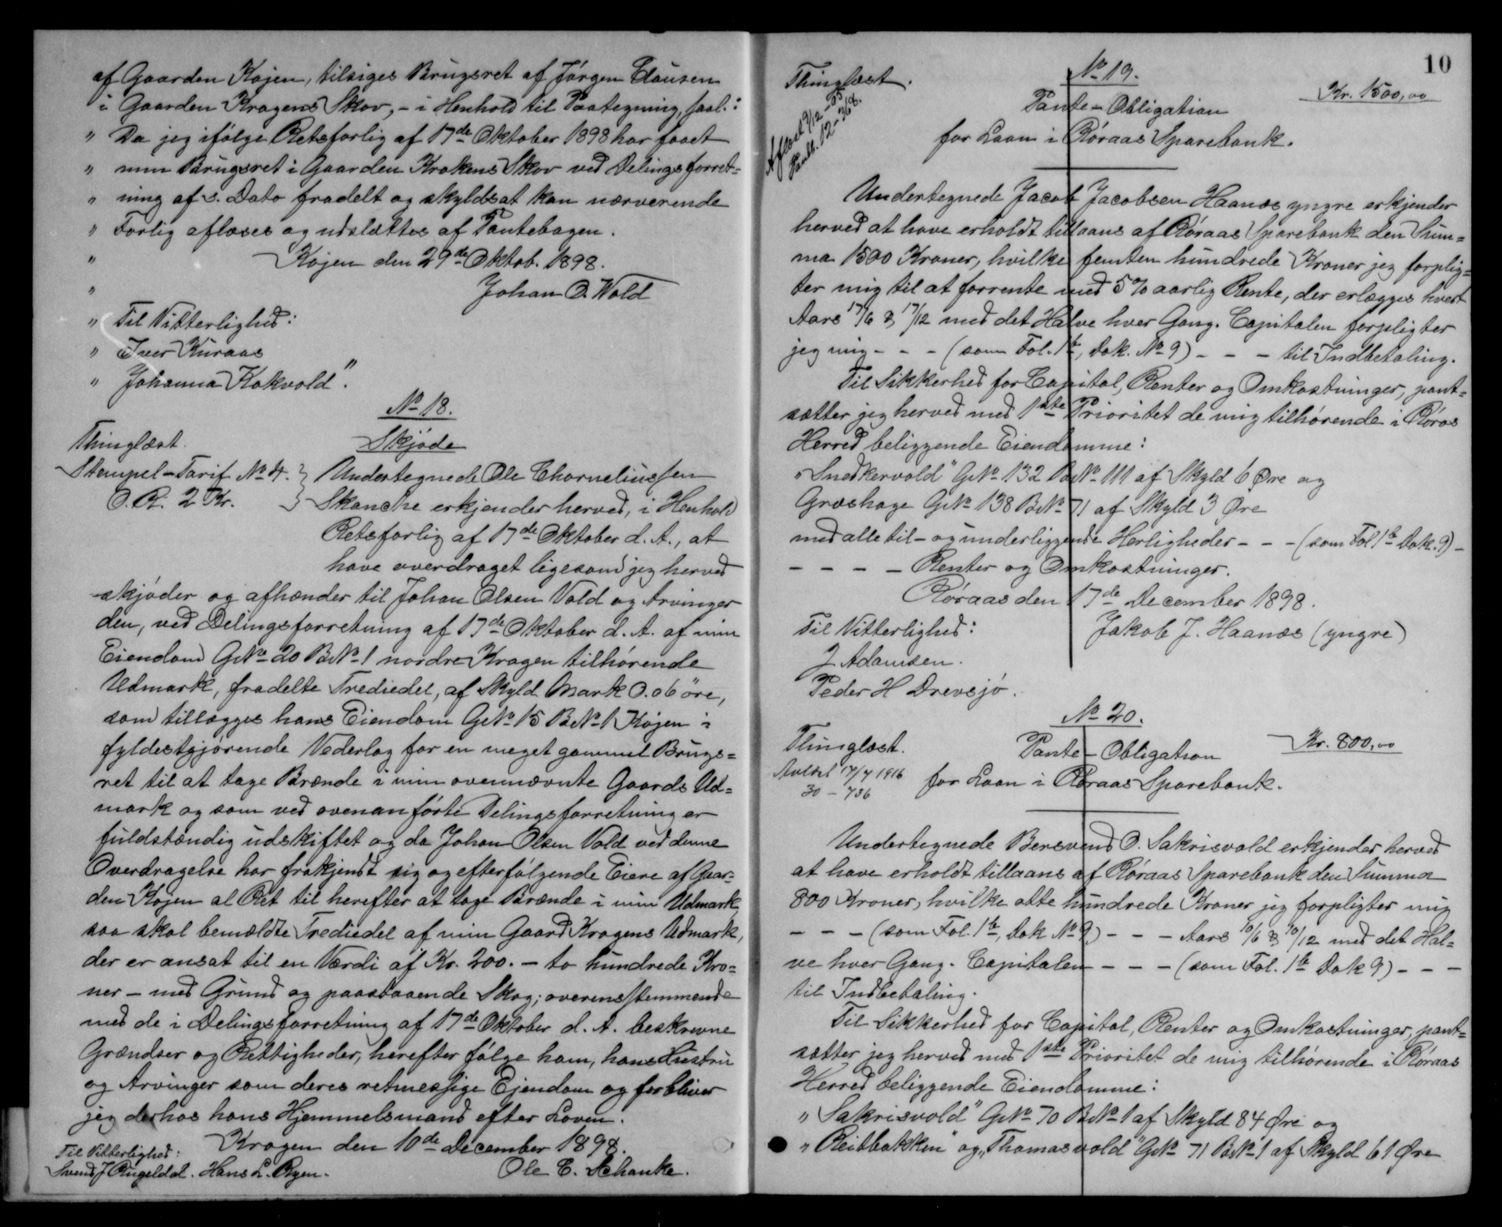 af Gaarden Kojen, tilsiges Brugsret af Jørgen Clausen
i Gaarden Kragens Skov, - i Henhold til Paategning, saal.:
" Da jeg ifølge Retsforlig af 17de Oktober 1898 har faaet
" min Brugsret i Gaarden Krokens Skov ved Delingsforret=
" ning af s. Dato fradelt og skyldsat kan nærværende
" Forlig aflæses og udslættes af Pantebogen.
" Kojen den 29de Oktob. 1898.
" Johan O. Vold
" Til Vitterlighed:
" Iver Kuraas
" Johanna Kokvold".
No 18.
Thinglæst.
Skjøde
Stempel-Tarif No 4.
O.R. 2 Kr.
Undertegnede Ole Chorneliussen
Skanche erkjender herved, i Henhold
Retsforlig af 17de Oktober d. A., at
have overdraget ligesom jeg herved
skjøder og afhænder til Johan Olsen Vold og Arvinger
den, ved Delingsforretning af 17de Oktober d. A. af min
Eiendom G.No 20 B.No 1 nordre Kragen tilhørende
Udmark, fradelte Trediedel, af Skyld Mark 0.06 øre,
som tillægges hans Eiendom G.No 15 B.No 1 Kojen i
fyldestgjørende Vederlag for en meget gammel Brugs=
ret til at tage Brænde i min ovennævnte Gaards Ud=
mark og som ved ovenanførte Delingsforretning er
fuldstændig udskiftet og da Johan Olsen Vold ved denne
Overdragelse har frakjendt sig og efterfølgende Eiere af Gaar-
den Kojen al Ret til herefter at tage Brænde i min Udmark,
saa skal bemældte Trediedel af min Gaard Kragens Udmark,
der er ansat til en Værdi af Kr. 200. - to hundrede Kro=
ner - med Grund og paastaaende Skog, overensstemmende
med de i Delingsforretning af 17de Oktober d. A. beskrevne
Grændser og Rettigheder, herefter følge ham, hans Hustru
og Arvinger som deres retmessige Ejendom og forbliver
jeg derhos hans Hjemmelsmand efter Loven.
Kragen den 10de December 1898.
Til Vitterlighed:
Ole C. Schanke.
Svend J Rugeldal. Hans L. Ryen.
10
Thinglæst.
No 19.
Kr. 1500,00
Pante-Obligation
for Laan i Røraas Sparebank.
Undertegnede Jacob Jacobsen Haanæs yngre erkjender
herved at have erholdt tillaans af Røraas Sparebank den Sum=
ma 1500 Kroner, hvilke femten hundrede Kroner jeg forplig=
ter mig til at forrente med 5% aarlig Rente, der erlægges hvert
Aars 17/6 & 17/12 med det Halve hver Gang. Capitalen forpligter
jeg mig - - - (som Fol. 1b, Dok. No 9) - - - til Indbetaling.
Til Sikkerhed for Capital, Renter og Omkostninger, pant=
sætter jeg herved med 1ste Prioritet de mig tilhørende i Røros
Herred beliggende Eiendomme:
"Snedkervold" G.No 132 B.No 111 af Skyld 6 Øre og
Græshage G.No 138 B.No 71 af Skyld 3 Øre
med alle til- og underliggende Herligheder - - - (som Fol 1b Dok. 9) -
- - - - Renter og Omkostninger.
Røraas den 17de December 1898.
Til Vitterlighed:
Jakob J. Haanæs (yngre)
J Adamsen.
Peder H Drevsjø.
No 20.
Thinglæst.
Kr. 800,00
Pante-Obligation
17/7 1916
30 - 736
for Laan i Røraas Sparebank.
Undertegnede Bersvend O. Sakrisvold erkjender herved
at have erholdt tillaans af Røraas Sparebank den Summa
800 Kroner, hvilke otte hundrede Kroner jeg forpligter mig
- - - (som Fol. 1b, Dok No 9) - - - Aars 10/6 & 10/12 med det Hal=
ve hver Gang. Capitalen - - - (som Fol. 1b Dok 9) - - -
til Indbetaling.
Til Sikkerhed for Capital, Renter og Omkostninger, pant=
sætter jeg herved med 1ste Prioritet de mig tilhørende i Røraas
Herred beliggende Eiendomme:
"Sakrisvold" G.No 70 B.No 1 af Skyld 84 Øre og
"Reitbakken" og "Thomasvold" G.No 71 B.No 1 af Skyld 61 Øre